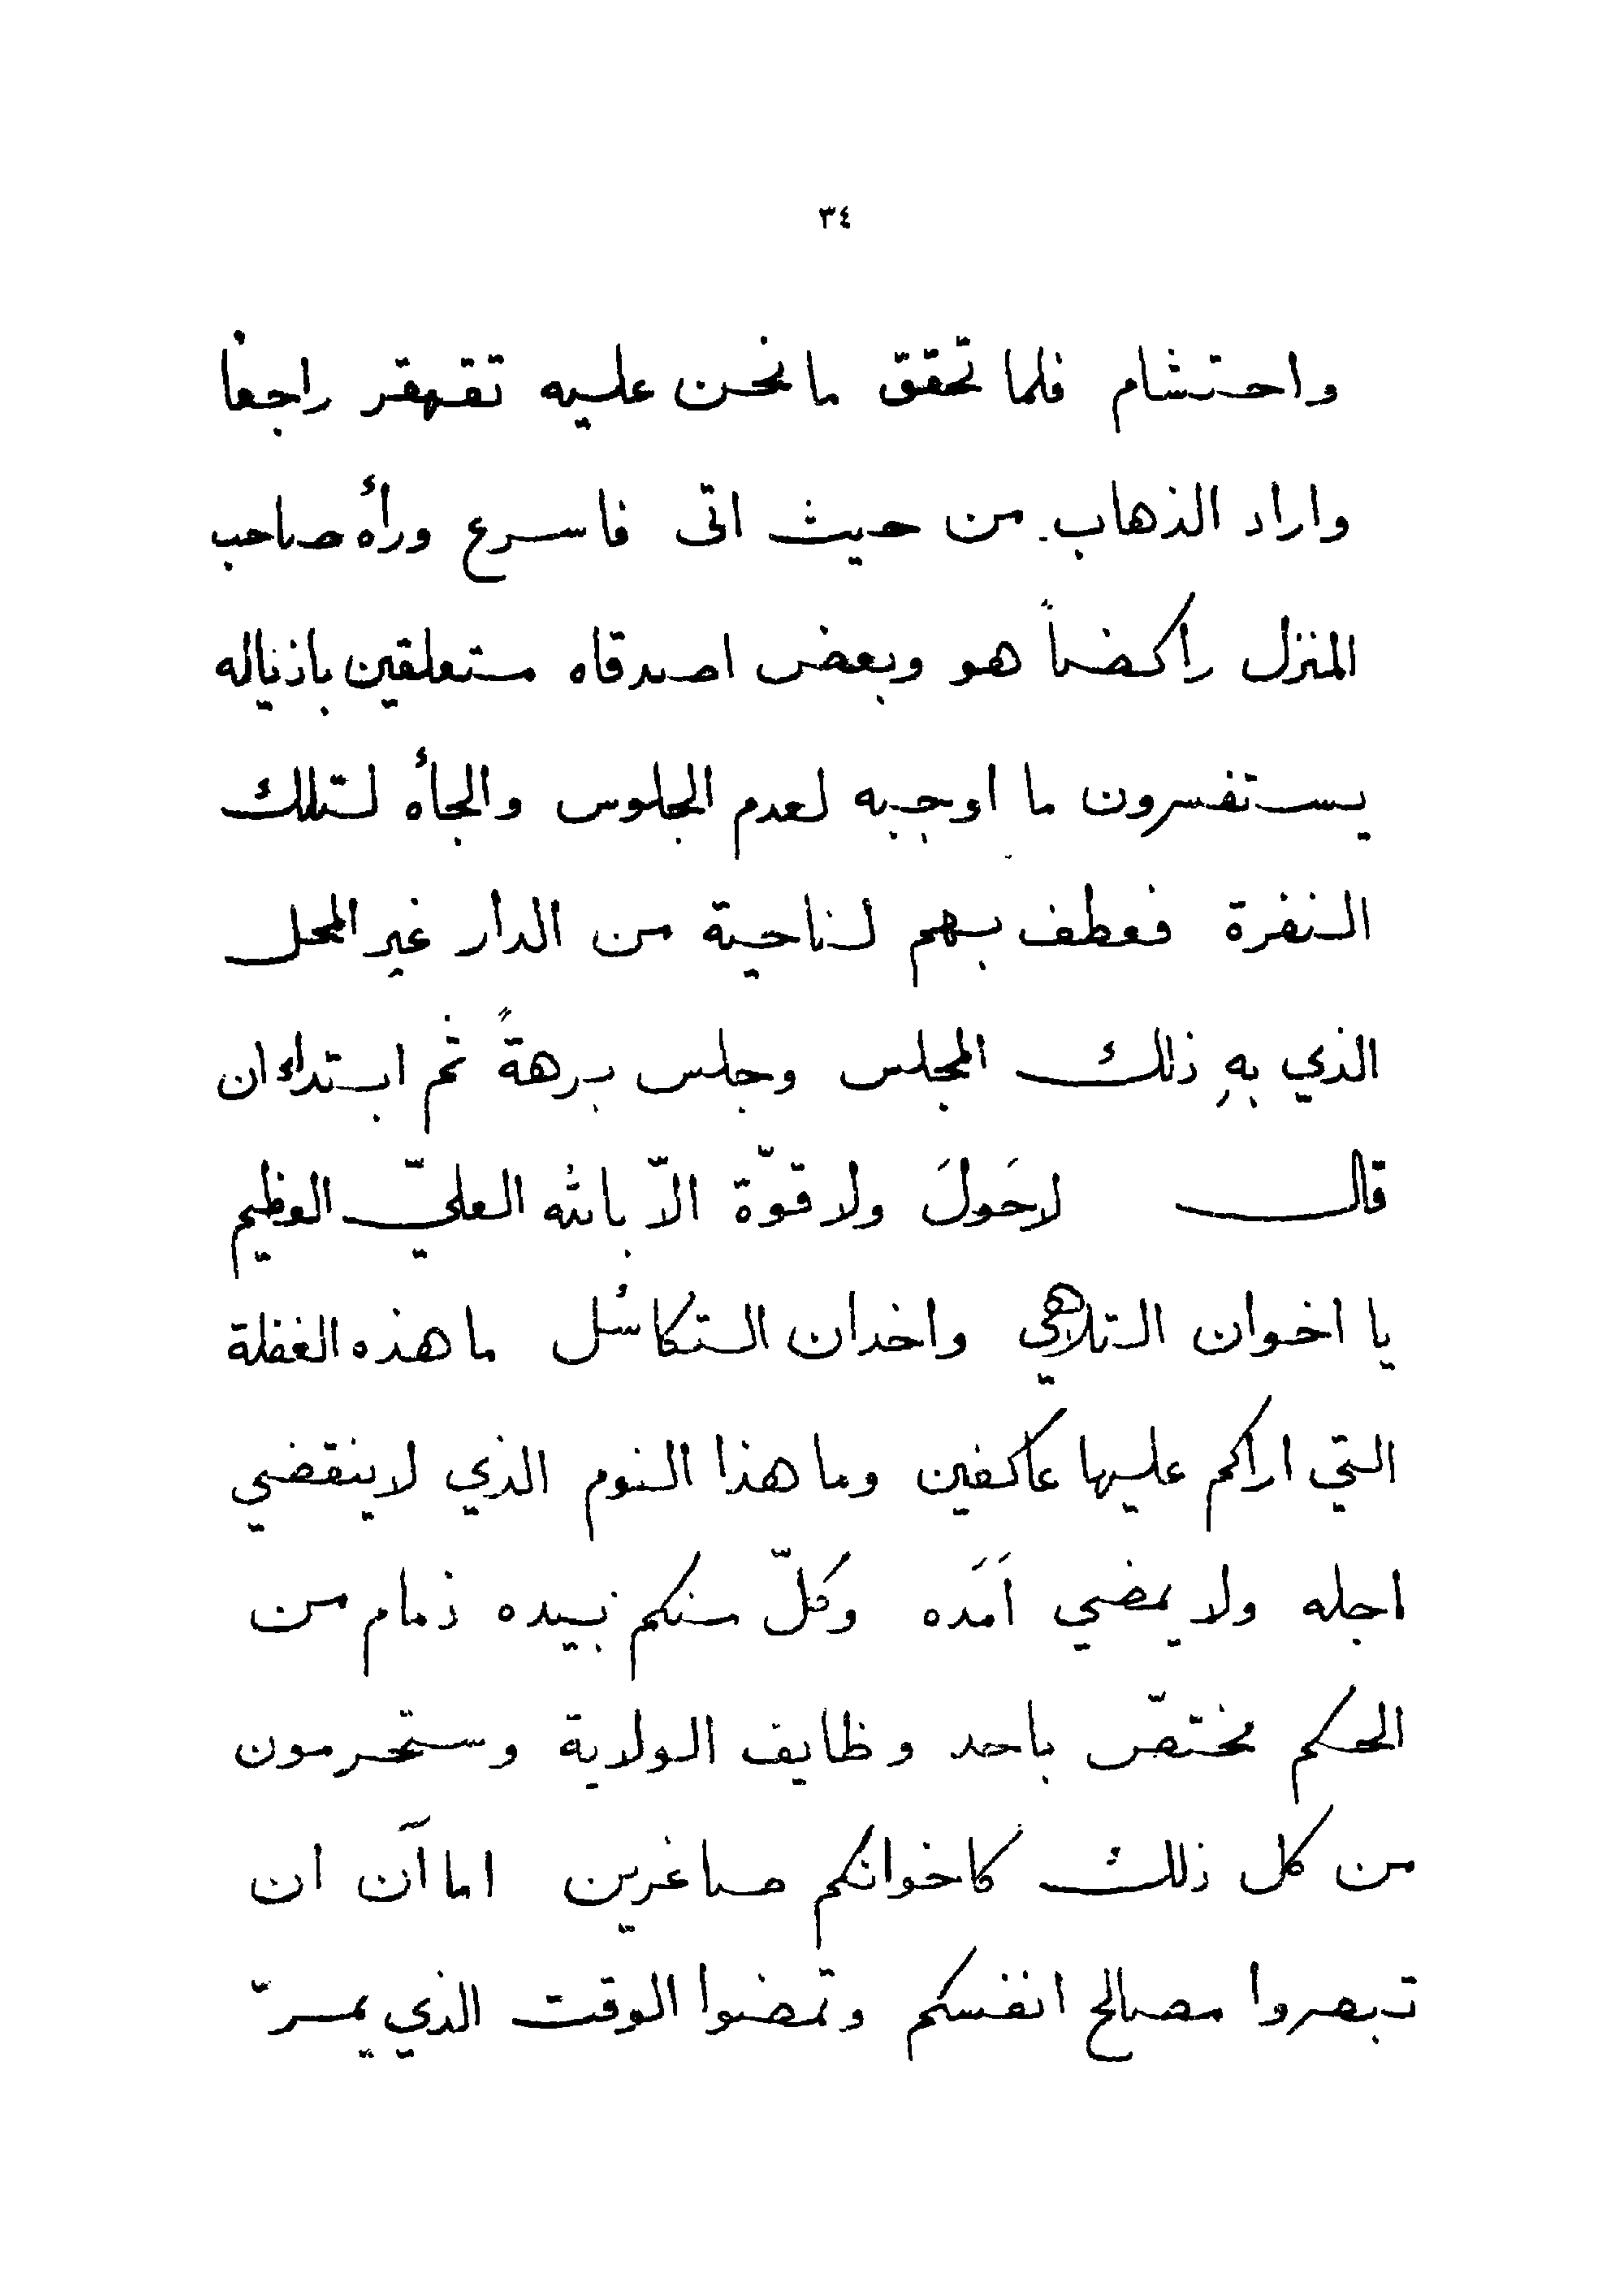 ٣٤
واحتشام فلما تحقق ما نحن عليه تقهقر راجعا
واراد الذهاب من حيث اتى فاسرع ورأه صاحب
المنزل راكضاً هو وبعض اصدقاه متعلقين باذياله
يستفسرون ما اوجبه لعدم الجلوس والجأه لتلك
النفرة فعطف بهم لناحية من الدار غير المحل
الذي بهِ ذلك المجلس وجلس برهةً ثم ابتداء ان
قال لاحَولَ ولا قوّة الاّ بالله العليّ العظيم
يا اخوان التلاهي واخدان التكاسُل ما هذه الغفلة
التي اراكم عليها عاكفين وما هذا النوم الذي لاينقضي
اجله ولا يمضي اَمَده وكلّ منكم بيده زمام من
الحكم مختصّ باحد وظايف الولاية وستحرمون
من كل ذلك كاخوانكم صاغرين اما آن ان
تبصروا مصالح انفسكم وتمضوا الوقت الذي يمرّ